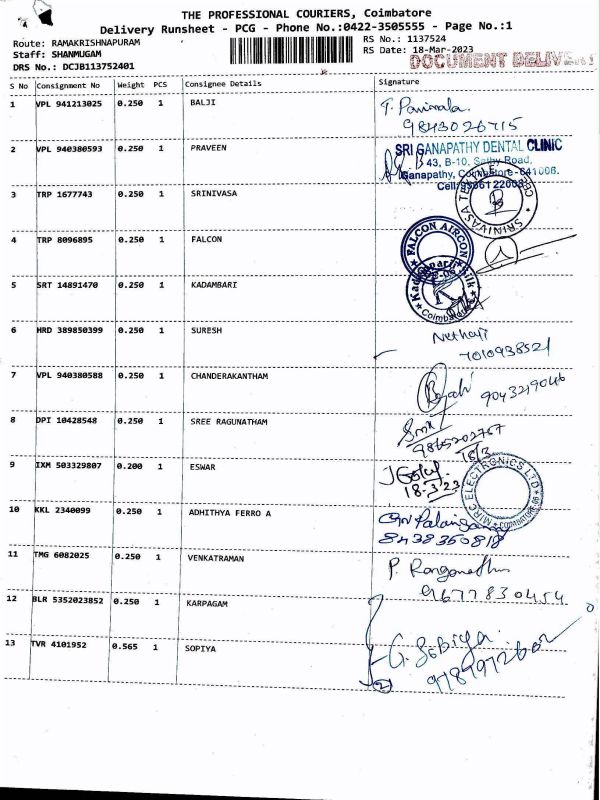 THE PROFESSIONAL COURIERS, Coimbatore
Delivery Runsheet - PCG - Phone No.:0422-3505555 - Page No.:1
Route: RAMAKRISHNAPURAM
RS No.: 1137524
Staff: SHANMUGAM
RS Date: 18-Mar-2023
DOCUMENT DELIVER
DRS No.: DCJB113752401
S No Consignment No Weight PCS Consignee Details Signature
1 VPL 941213025 0.250 1 BALJI
9843026715
2 VPL 940380593 0.250 1 PRAVEEN
SRI GANAPATHY DENTAL CLINIC
43, B-10, Sathy Road,
Ganapathy, Coimbatore-641006.
3 TRP 1677743 0.250 1 SRINIVASA
SRINIVASA
4 TRP 8096895 0.250 1 FALCON
FALCON AIRCON
5 SRT 14891470 0.250 1 KADAMBARI
Coimbatore
6 HRD 389850399 0.250 1 SURESH
Nethaji
7010938521
7 VPL 940380588 0.250 1 CHANDERAKANTHAM
9043219046
8 DPI 10428548 0.250 1 SREE RAGUNATHAM
9865202767
18/3
9 IXM 503329807 0.200 1 ESWAR
18-3-23
MIRC ELECTRONICS LTD
COIMBATORE
10 KKL 2340099 0.250 1 ADHITHYA FERRO A
8438360818
11 TMG 6082025 0.250 1 VENKATRAMAN
P. Ranganathn
9677830454
12 BLR 5352023852 0.250 1 KARPAGAM
13 TVR 4101952 0.565 1 SOPIYA
G. Sobiya
2